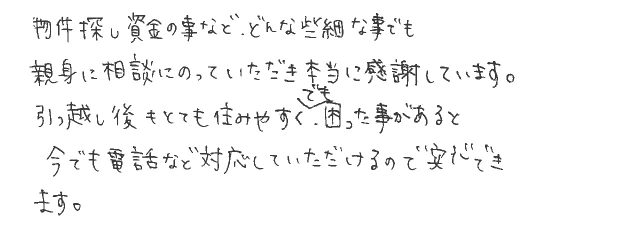 物件探し資金の事など、どんな些細な事でも
親身に相談にのっていただき本当に感謝しています。
引っ越し後もとても住みやすく、でも困った事があると
今でも電話など対応していただけるので安心でき
ます。